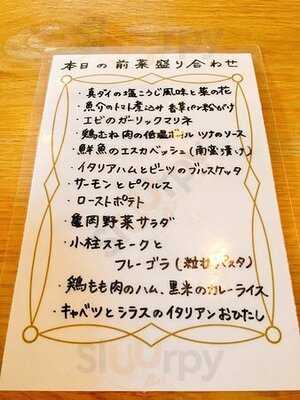 本日の前菜盛り合わせ
・真ダイの塩こうじ風味と菜の花
・魚介のトマト煮込み 香草パン粉がけ
・エビのガーリックマリネ
・鶏むね肉の低温ボイル ツナのソース
・鮮魚のエスカベッシュ(南蛮漬け)
・イタリアハムとビーツのブルスケッタ
・サーモンとピクルス
・ローストポテト
・亀岡野菜サラダ
・小柱スモークと
フレーゴラ(粒むパスタ)
・鶏もも肉のハム、黒米のカレーライス
・キャベツとシラスのイタリアンおひたし
Sluurpy